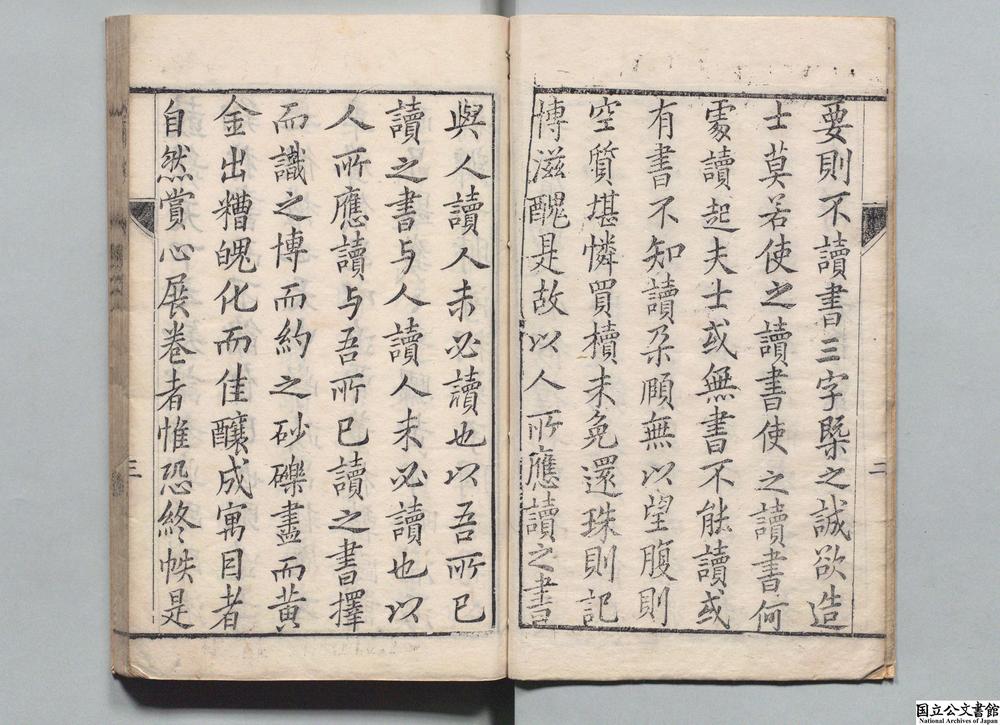 要則不讀書三字槩之誠欲造
士莫若使之讀書使之讀書何
處讀起夫士或無書不能讀或
有書不知讀朶頤無以望腹則
空質堪憐買櫝未免還珠則記
博滋醜是故以人所應讀之書
二
與人讀人未必讀也以吾所已
讀之書与人讀人未必讀也以
人所應讀与吾所已讀之書擇
而識之博而約之砂礫盡而黃
金出糟魄化而佳釀成寓目者
自然賞心展卷者惟恐終帙是
三
国立公文書館
National Archives of Japan